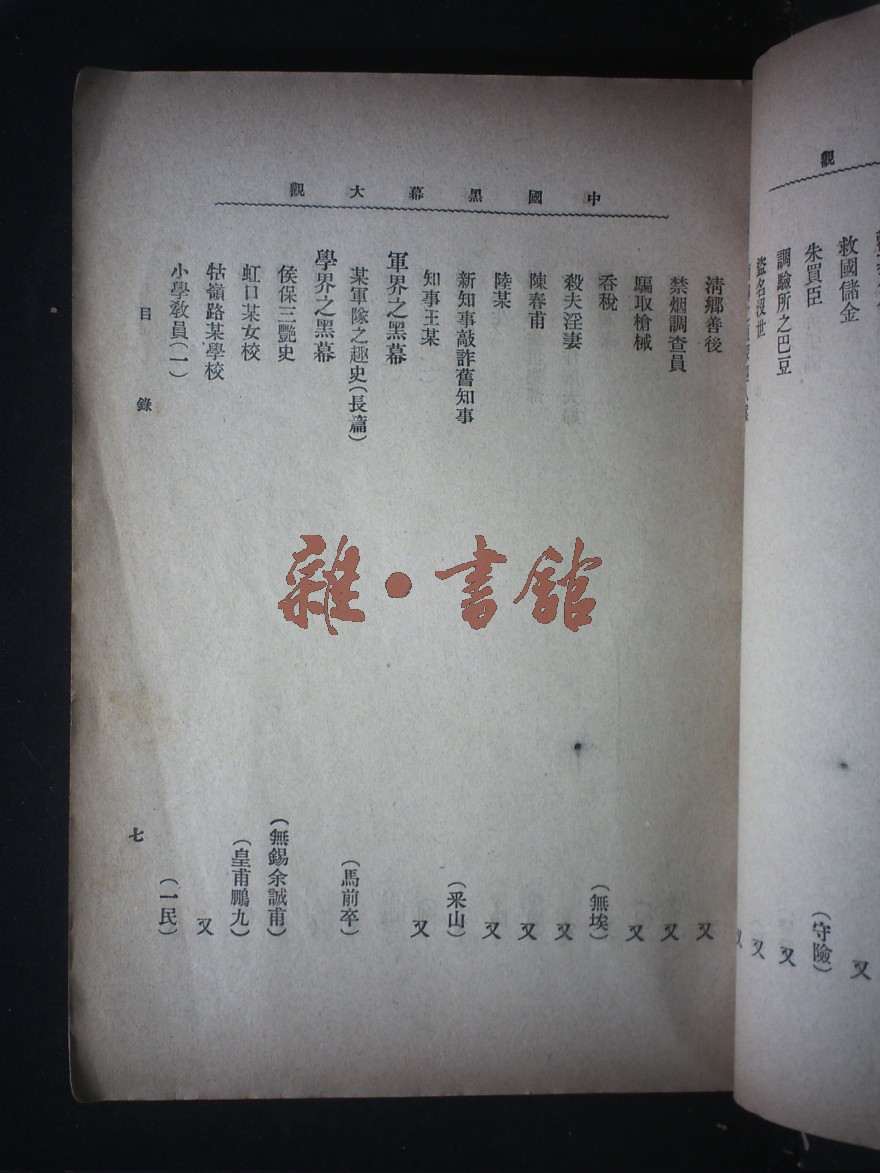 觀
救國儲金 又
朱買臣 (守險)
調驗所之巴豆 又
盜名沒世 又
中國黑幕大觀
清鄉善後 又
禁烟調查員 又
騙取槍械 又
吞稅 (無埃)
殺夫淫妻 又
陳春甫 又
陸某 又
新知事敲詐舊知事 (釆山)
知事王某 又
軍界之黑幕
某軍隊之趣史(長篇) (馬前卒)
學界之黑幕
侯保三艷史 (無錫余誠甫)
虹口某女校 (皇甫鵬九)
牯嶺路某學校 又
小學教員(一) (一民)
目錄 七
雜·書館